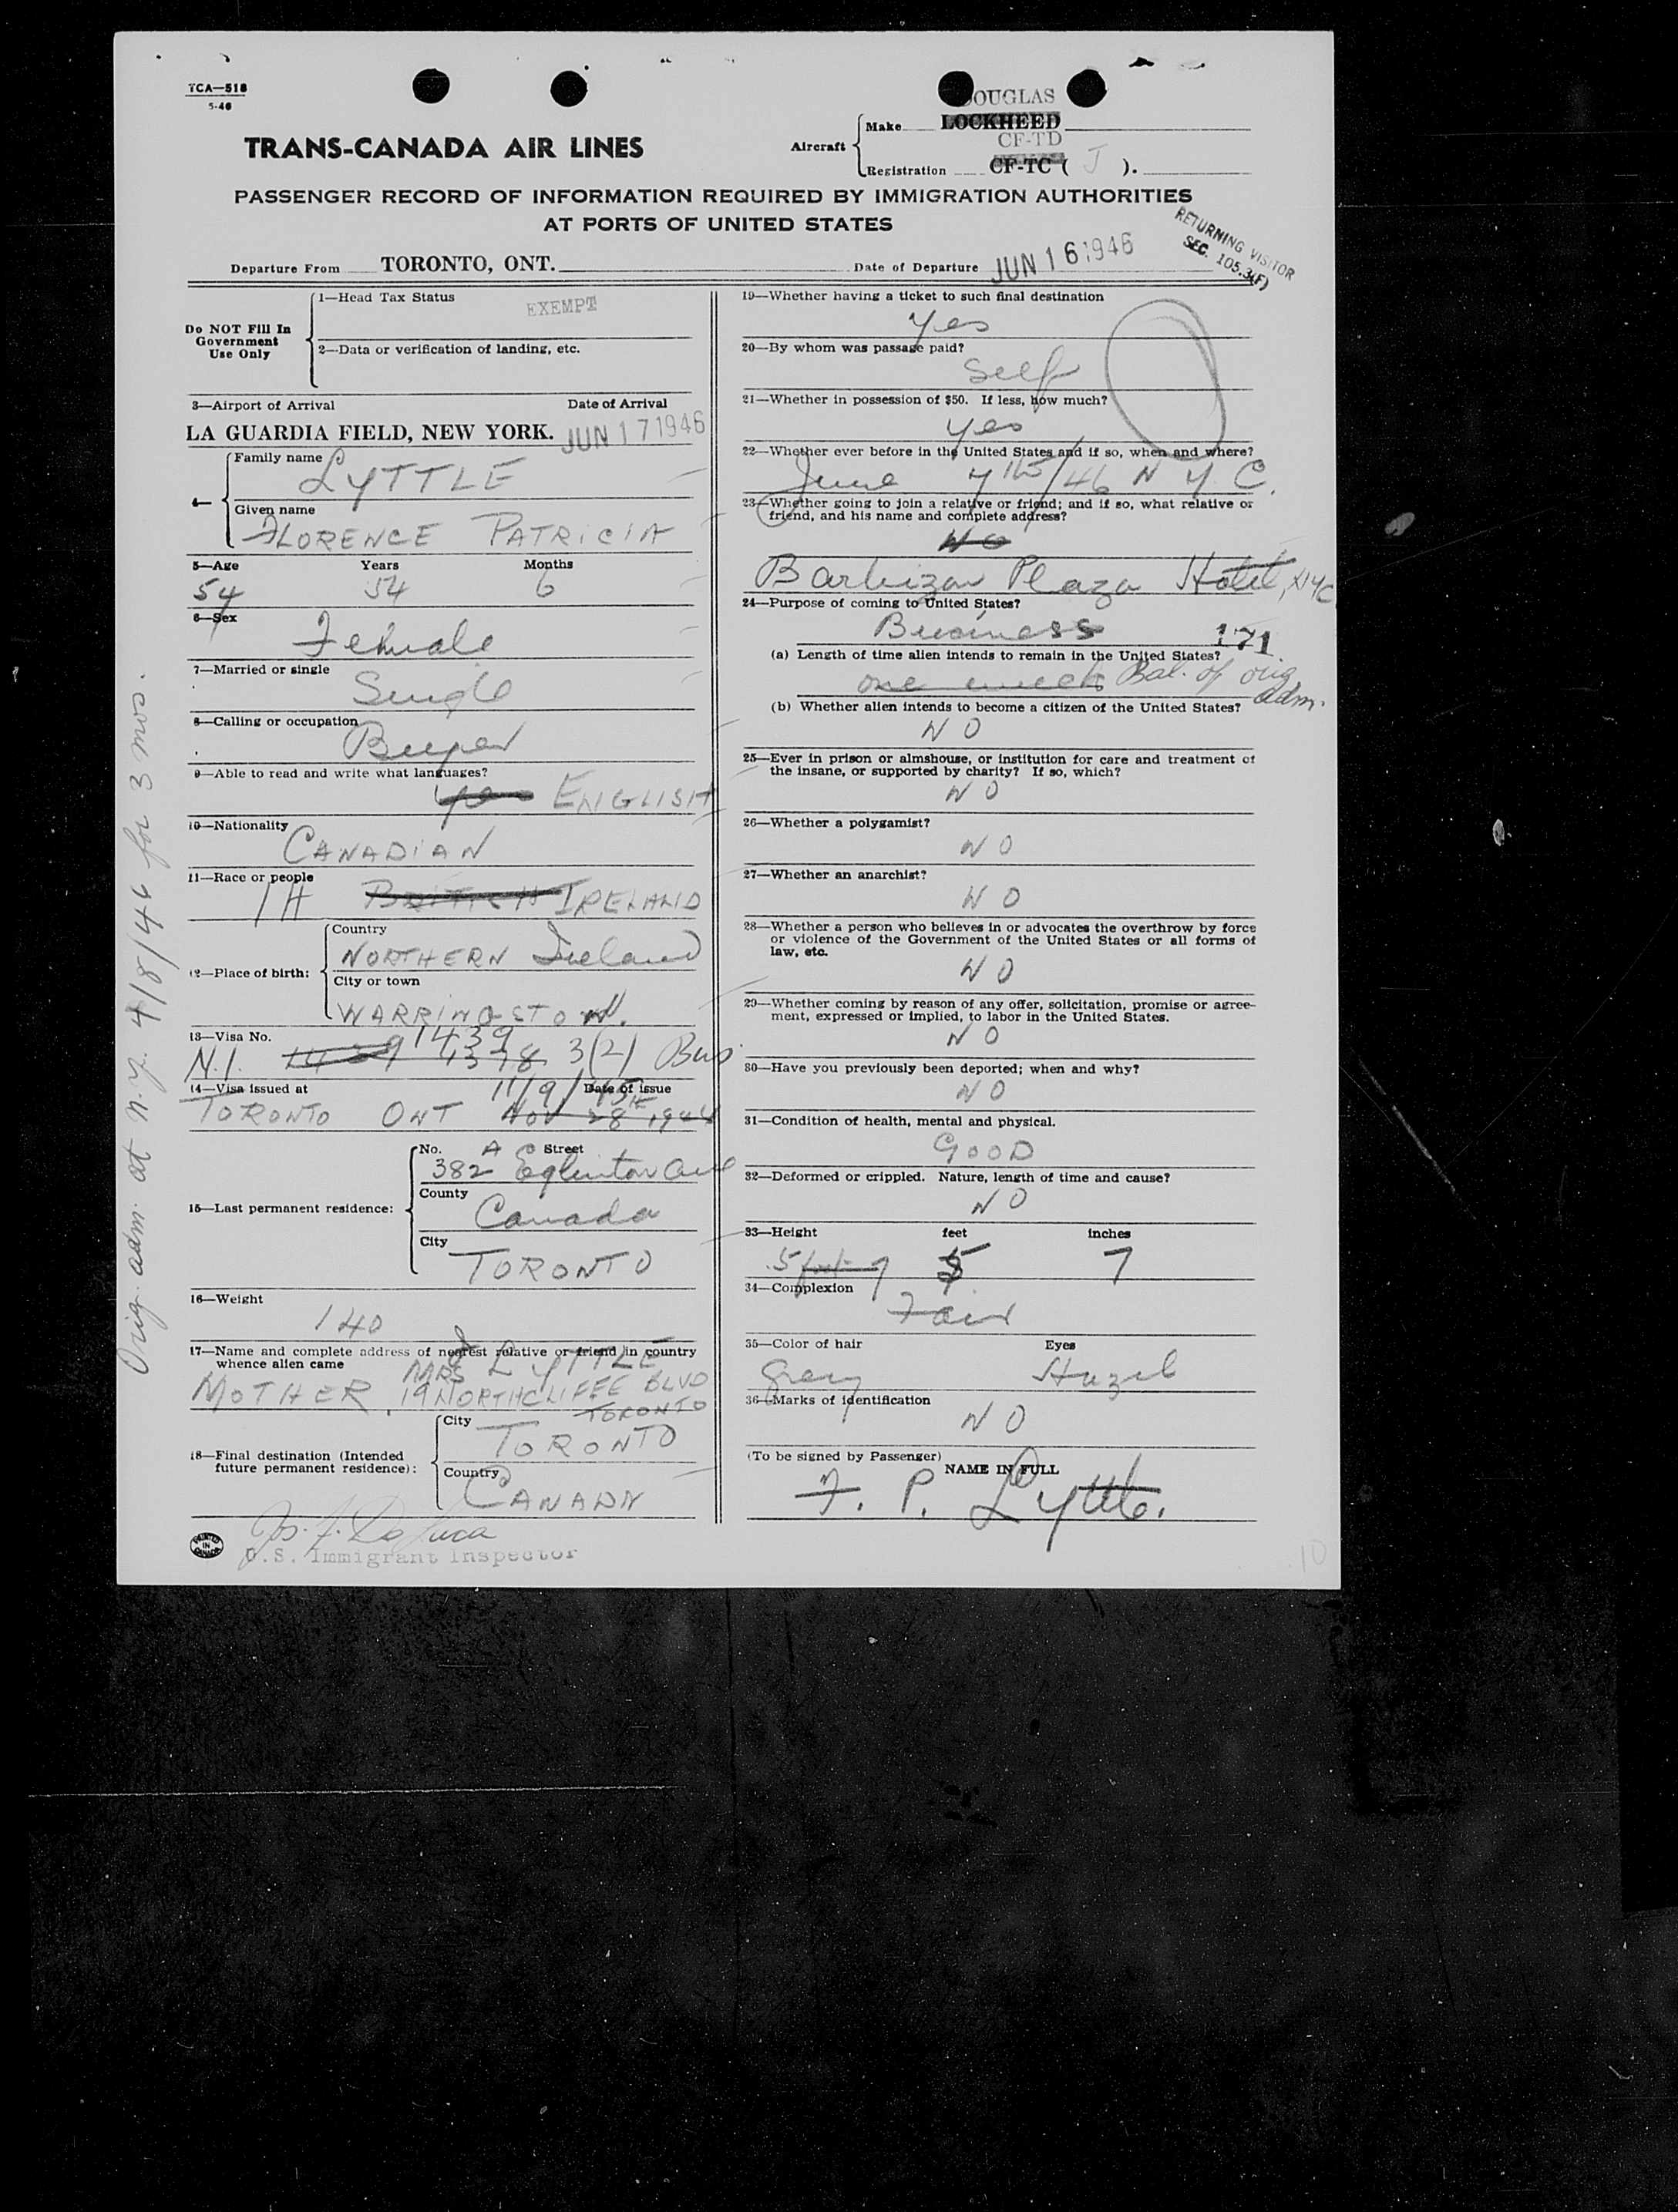 TCA—518
5-46
DOUGLAS
TRANS-CANADA AIR LINES
Aircraft
Make LOCKHEED
CF-TD
Registration CF-TC ( J ).
PASSENGER RECORD OF INFORMATION REQUIRED BY IMMIGRATION AUTHORITIES
AT PORTS OF UNITED STATES
RETURNING VISITOR
SEC. 105.3(F)
Departure From TORONTO, ONT.
Date of Departure JUN 16 1946
Do NOT Fill In
Government
Use Only
1—Head Tax Status
EXEMPT
2—Data or verification of landing, etc.
3—Airport of Arrival Date of Arrival
LA GUARDIA FIELD, NEW YORK. JUN 17 1946
4—
Family name
LYTTLE
Given name
FLORENCE PATRICIA
5—Age Years Months
54 54 6
6—Sex
Female
7—Married or single
Single
8—Calling or occupation
Buyer
9—Able to read and write what languages?
yes ENGLISH
10—Nationality
CANADIAN
11—Race or people
IH BRITISH IRELAND
12—Place of birth:
Country
NORTHERN Ireland
City or town
WARRINGSTOWN.
13—Visa No.
1439
N.I. 1439 4378 3(2) Bus.
14—Visa issued at Date of issue
11/9/45
TORONTO ONT Nov 28th 1944
15—Last permanent residence:
No. A Street
382 Eglinton Ave
County
Canada
City
TORONTO
16—Weight
140
17—Name and complete address of nearest relative or friend in country
whence alien came
MRS J LYTTLE
MOTHER, 19 NORTHCLIFFE BLVD
TORONTO
18—Final destination (Intended
future permanent residence):
City
TORONTO
Country
CANADA
Jos. F. De Luca
U.S. Immigrant Inspector
PRINTED
IN
CANADA
Orig. adm. at N.Y. 4/8/46 for 3 mos.
19—Whether having a ticket to such final destination
Yes
20—By whom was passage paid?
Self
21—Whether in possession of $50. If less, how much?
yes
22—Whether ever before in the United States and if so, when and where?
June 4th/46 N Y C.
23—Whether going to join a relative or friend; and if so, what relative or
friend, and his name and complete address?
NO
Barbizon Plaza Hotel, NYC
24—Purpose of coming to United States?
Business 171
(a) Length of time alien intends to remain in the United States?
one week Bal. of orig.
adm.
(b) Whether alien intends to become a citizen of the United States?
NO
25—Ever in prison or almshouse, or institution for care and treatment of
the insane, or supported by charity? If so, which?
NO
26—Whether a polygamist?
NO
27—Whether an anarchist?
NO
28—Whether a person who believes in or advocates the overthrow by force
or violence of the Government of the United States or all forms of
law, etc.
NO
29—Whether coming by reason of any offer, solicitation, promise or agree-
ment, expressed or implied, to labor in the United States.
NO
30—Have you previously been deported; when and why?
NO
31—Condition of health, mental and physical.
GOOD
32—Deformed or crippled. Nature, length of time and cause?
NO
33—Height feet inches
5 foot 7 5 7
34—Complexion
Fair
35—Color of hair Eyes
Grey Hazel
36—Marks of identification
NO
(To be signed by Passenger)
NAME IN FULL
F. P. Lyttle.
10